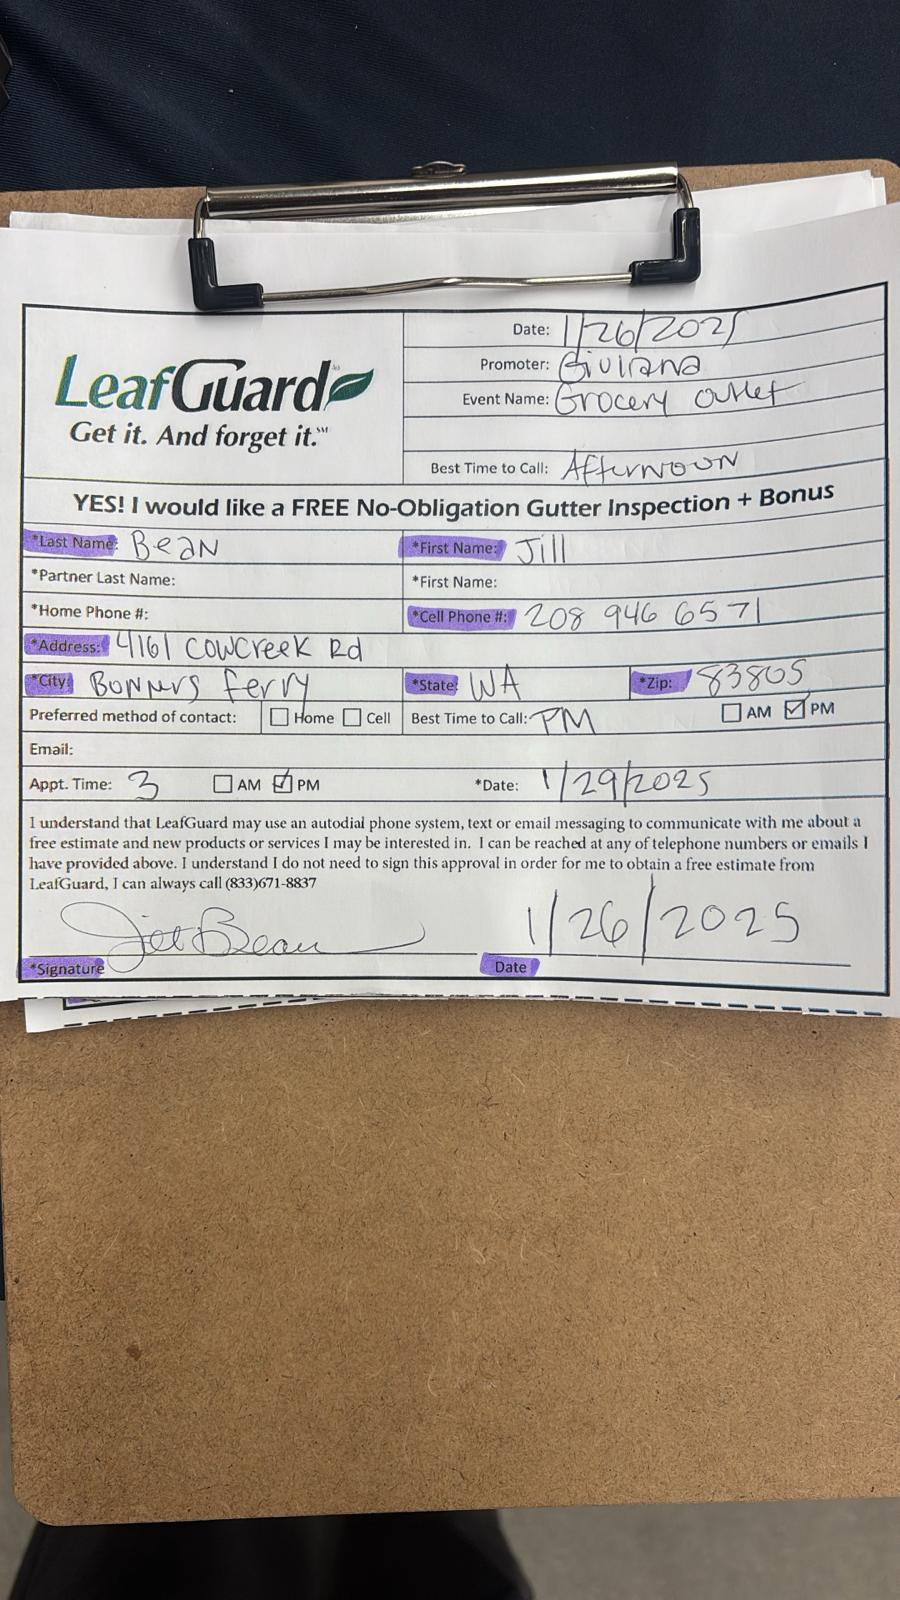 Date: 1/26/2025
Promoter: Giuliana
Event Name: Grocery outlet
LeafGuard
Get it. And forget it.℠
Best Time to Call: Afternoon
YES! I would like a FREE No-Obligation Gutter Inspection + Bonus
*Last Name: Bean *First Name: Jill
*Partner Last Name: *First Name:
*Home Phone #: *Cell Phone #: 208 946 6571
*Address: 4161 Cowcreek Rd
*City: Bonners Ferry *State: WA *Zip: 83805
Preferred method of contact: Home Cell Best Time to Call: PM AM PM
Email:
Appt. Time: 3 AM PM *Date: 1/29/2025
I understand that LeafGuard may use an autodial phone system, text or email messaging to communicate with me about a
free estimate and new products or services I may be interested in. I can be reached at any of telephone numbers or emails I
have provided above. I understand I do not need to sign this approval in order for me to obtain a free estimate from
LeafGuard, I can always call (833)671-8837
Jill Bean 1/26/2025
*Signature Date